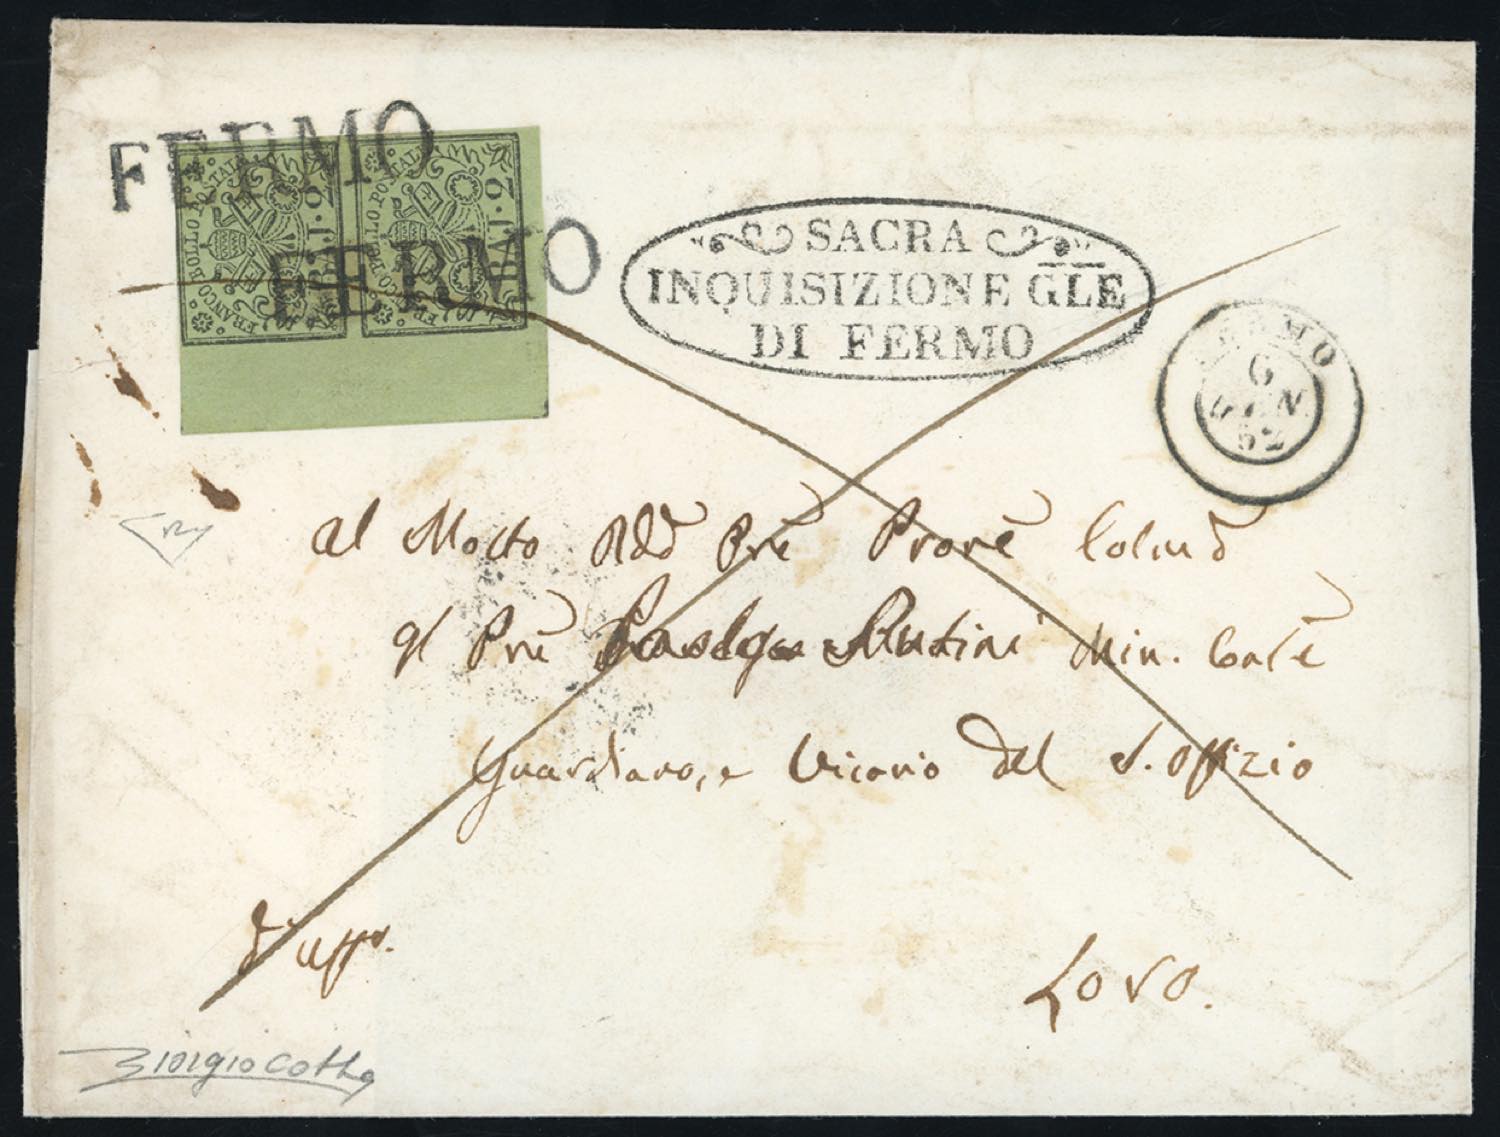 FERMO
FERMO
FRANCO BOLLO POSTALE BAJ. 2
FRANCO BOLLO POSTALE BAJ. 2
SACRA
INQUISIZIONE GLE
DI FERMO
FERMO
6
GEN
52
Al Molto Rdō Prē Pronē Colmō
Il Prē Rutini Min. Conlē
Guardiano, e Vicario del S. Offizio
d'uffo.
Loro.
Giorgio Colla